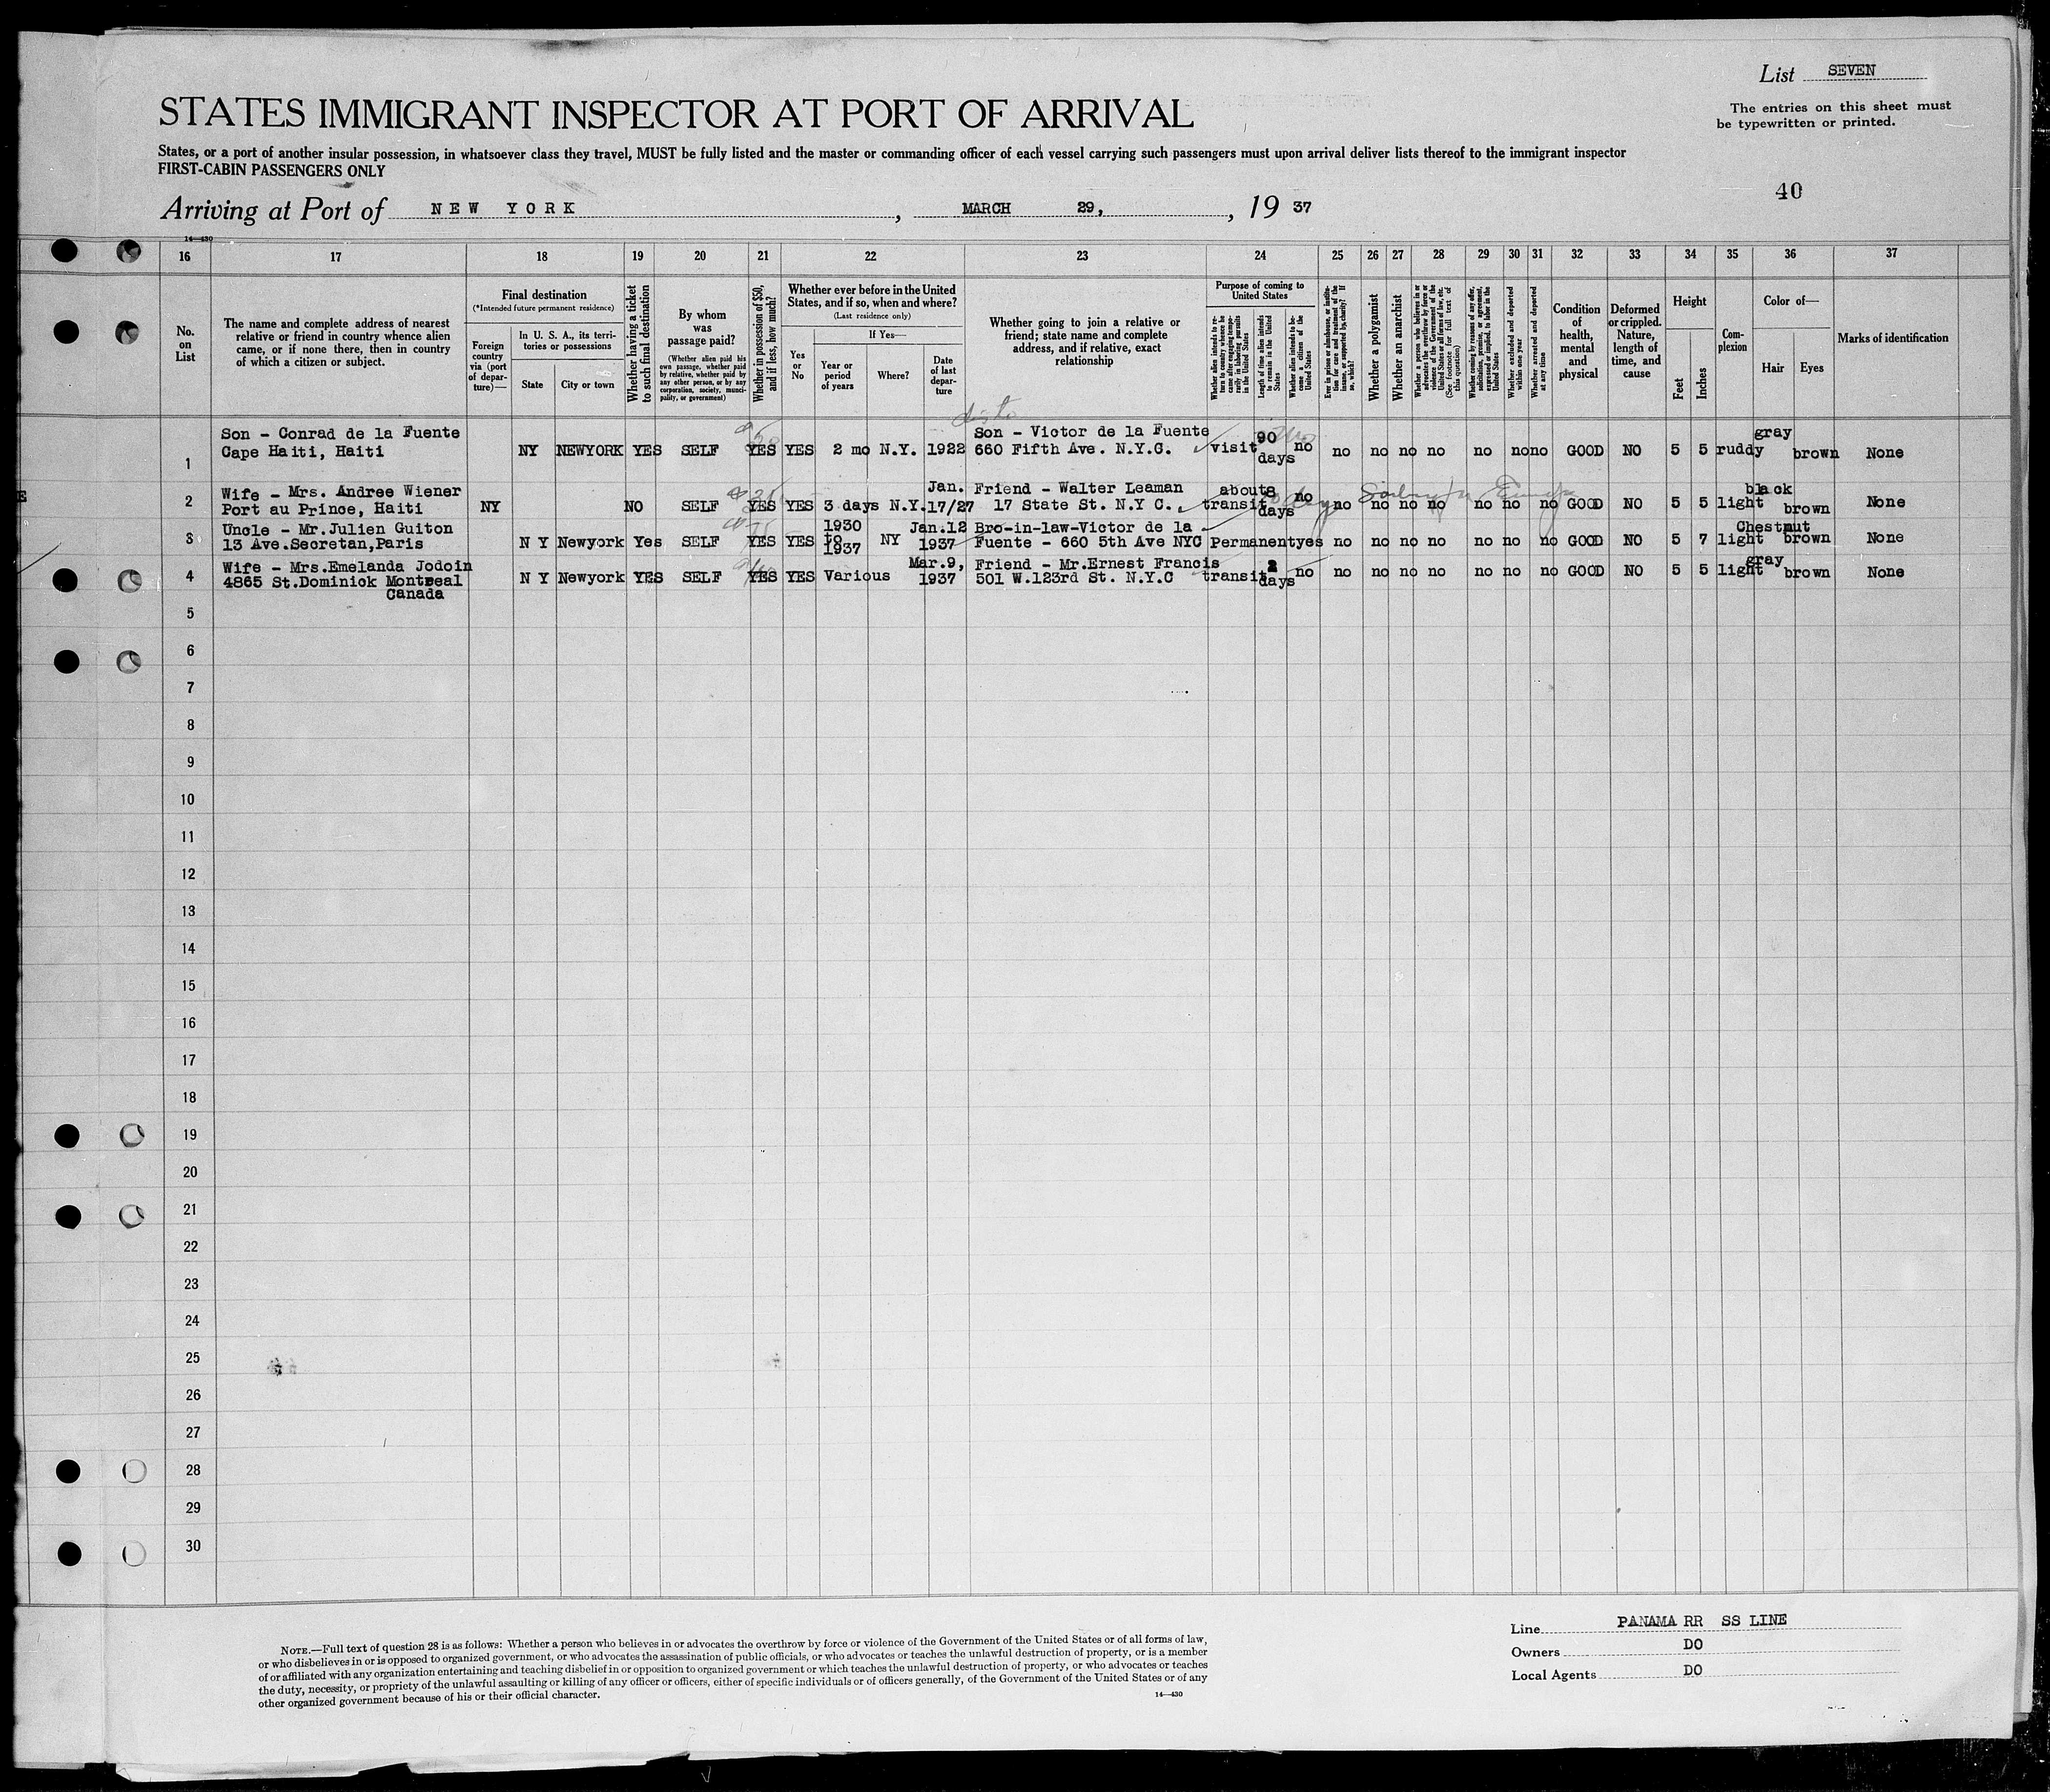 List SEVEN
STATES IMMIGRANT INSPECTOR AT PORT OF ARRIVAL
The entries on this sheet must
be typewritten or printed.
States, or a port of another insular possession, in whatsoever class they travel, MUST be fully listed and the master or commanding officer of each vessel carrying such passengers must upon arrival deliver lists thereof to the immigrant inspector
FIRST-CABIN PASSENGERS ONLY
40
Arriving at Port of NEW YORK, MARCH 29, 1937
14—430
16 17 18 19 20 21 22 23 24 25 26 27 28 29 30 31 32 33 34 35 36 37
No. on List
The name and complete address of nearest
relative or friend in country whence alien
came, or if none there, then in country
of which a citizen or subject.
Final destination
(*Intended future permanent residence)
Foreign country via (port of departure)—
In U. S. A., its territories or possessions
State
City or town
Whether having a ticket to such final destination
By whom was passage paid?
(Whether alien paid his own passage, whether paid by relative, whether paid by any other person, or by any corporation, society, municipality, or government)
Whether in possession of $50, and if less, how much?
Whether ever before in the United States, and if so, when and where?
(Last residence only)
Yes or No
If Yes—
Year or period of years
Where?
Date of last departure
Whether going to join a relative or
friend; state name and complete
address, and if relative, exact
relationship
Purpose of coming to United States
Whether alien intends to return to country whence he came after engaging temporarily in laboring pursuits in the United States
Length of time alien intends to remain in the United States
Whether alien intends to become a citizen of the United States
Ever in prison or almshouse, or institution for care and treatment of the insane, or supported by charity? If so, which?
Whether a polygamist
Whether an anarchist
Whether a person who believes in or advocates the overthrow by force or violence of the Government of the United States or all forms of law, etc. (See footnote for full text of this question)
Whether coming by reason of any offer, solicitation, promise, or agreement, expressed or implied, to labor in the United States
Whether excluded and deported within one year
Whether arrested and deported at any time
Condition of health, mental and physical
Deformed or crippled. Nature, length of time, and cause
Height
Feet
Inches
Complexion
Color of—
Hair
Eyes
Marks of identification
1 Son - Conrad de la Fuente Cape Haiti, Haiti NY NEWYORK YES SELF YES YES 2 mo N.Y. 1922 Son - Victor de la Fuente 660 Fifth Ave. N.Y.C. visit 90 days no no no no no no no no GOOD NO 5 5 ruddy gray brown None
2 Wife - Mrs. Andree Wiener Port au Prince, Haiti NY NO SELF YES YES 3 days N.Y. Jan. 17/27 Friend - Walter Leaman 17 State St. N.Y C. transit about 8 days no no no no no no no no GOOD NO 5 5 light black brown None
3 Uncle - Mr.Julien Guiton 13 Ave.Secretan,Paris N Y Newyork Yes SELF YES YES 1930 to 1937 NY Jan.12 1937 Bro-in-law-Victor de la Fuente - 660 5th Ave NYC Permanent yes no no no no no no no GOOD NO 5 7 light Chestnut brown None
4 Wife - Mrs.Emelanda Jodoin 4865 St.Dominick Montreal Canada N Y Newyork YES SELF YES YES Various Mar.9, 1937 Friend - Mr.Ernest Francis 501 W.123rd St. N.Y.C transit 2 days no no no no no no no no GOOD NO 5 5 light gray brown None
5
6
7
8
9
10
11
12
13
14
15
16
17
18
19
20
21
22
23
24
25
26
27
28
29
30
NOTE.—Full text of question 28 is as follows: Whether a person who believes in or advocates the overthrow by force or violence of the Government of the United States or of all forms of law,
or who disbelieves in or is opposed to organized government, or who advocates the assassination of public officials, or who advocates or teaches the unlawful destruction of property, or is a member
of or affiliated with any organization entertaining and teaching disbelief in or opposition to organized government or which teaches the unlawful destruction of property, or who advocates or teaches
the duty, necessity, or propriety of the unlawful assaulting or killing of any officer or officers, either of specific individuals or of officers generally, of the Government of the United States or of any
other organized government because of his or their official character.
14—430
Line PANAMA RR SS LINE
Owners DO
Local Agents DO